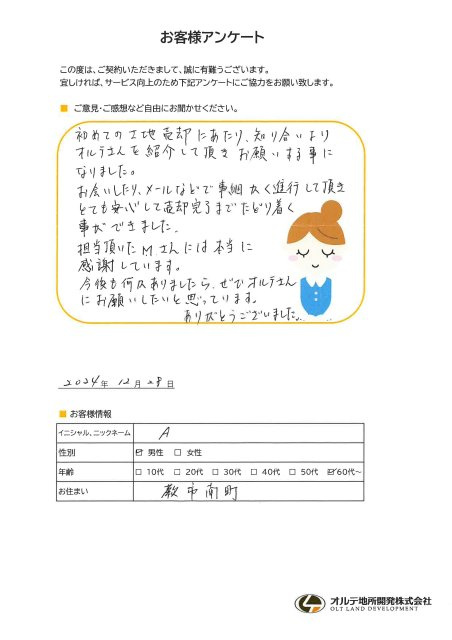 お客様アンケート
この度は、ご契約いただきまして、誠に有難うございます。
宜しければ、サービス向上のため下記アンケートにご協力をお願い致します。
■ ご意見・ご感想など自由にお聞かせください。
初めての土地売却にあたり、知り合いより
オルテさんを紹介して頂きお願いする事に
なりました。
お会いしたり、メールなどで事細かく進行して頂き
とても安心して売却完了までたどり着く
事ができました。
担当頂いたMさんには本当に
感謝しています。
今後も何かありましたら、ぜひオルテさん
にお願いしたいと思っています。
ありがとうございました。
2024年 12月 28日
■ お客様情報
イニシャル、ニックネーム A
性別 ☑ 男性 □ 女性
年齢 □ 10代 □ 20代 □ 30代 □ 40代 □ 50代 ☑ 60代～
お住まい 敷市南町
オルテ地所開発株式会社
OLT LAND DEVELOPMENT